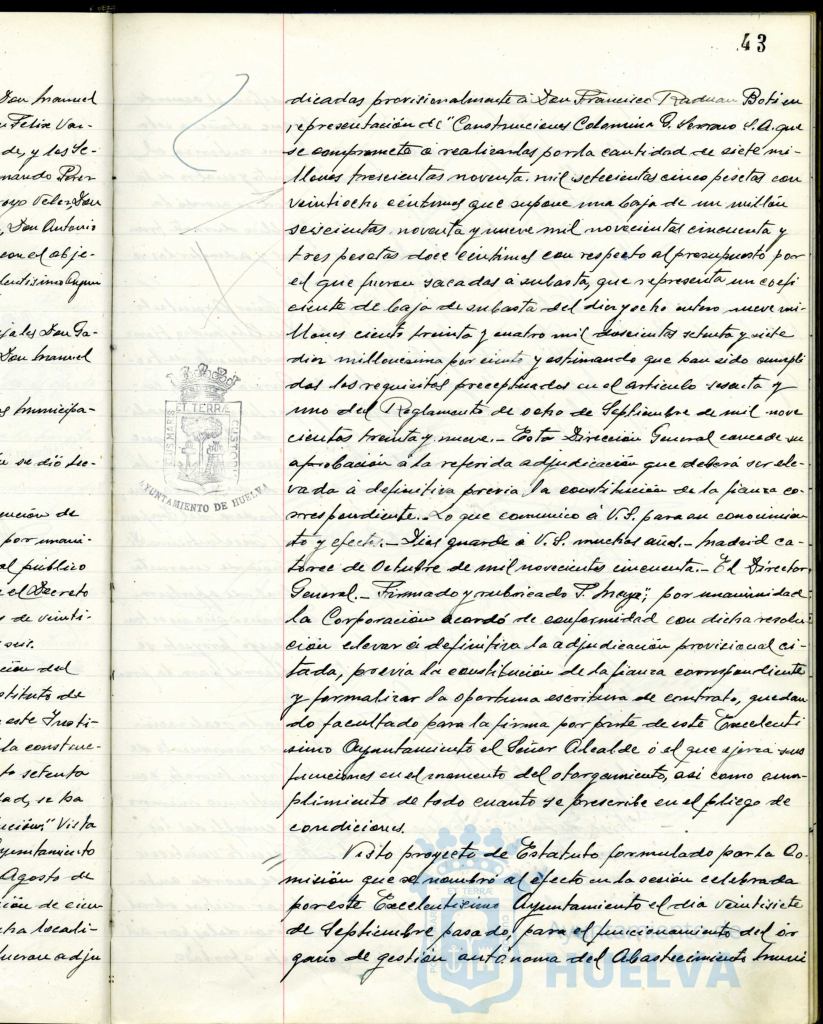 43
Don Manuel
Felix Var-
de, y los Se-
nando Perez
royo Velez, Don
, Don Antonio
con el obje-
lentisimo Ayun
jales Don Ga-
Don Manuel
s municipa-
se dió lec-
nución de
por unani-
al público
el Decreto
s de veinti-
ción del
stituto de
este Insti-
la construc-
to setenta
dad, se ha
ución," Vista
yuntamiento
Agosto de
ción de cien
cha locali-
fueron adju
dicadas provisionalmente á Don Francisco Raduan Boti en
representación de "Construcciones Colomina G. Serrano S.A. que
se compromete á realizarlas por la cantidad de siete mi-
llones trescientas noventa mil setecientas cinco pesetas con
veintiocho céntimos que supone una baja de un millón
seiscientas noventa y nueve mil novecientas cincuenta y
tres pesetas doce céntimos con respecto al presupuesto por
el que fueron sacadas á subasta, que representa un coefi
ciente de baja de subasta del diez y ocho entero nueve mi-
llones ciento treinta y cuatro mil doscientas setenta y siete
diez millonesima por ciento y estimando que han sido cumpli
dos los requisitos preceptuados en el articulo sesenta y
uno del Reglamento de ocho de Septiembre de mil nove
cientos treinta y nueve.- Esta Dirección General concede su
aprobación á la referida adjudicación que deberá ser ele-
vada á definitiva previa la constitución de la fianza co-
rrespondiente.- Lo que comunico á V.S. para su conocimien
to y efectos.- Dios guarde á V.S. muchos años.- Madrid ca-
torce de Octubre de mil novecientos cincuenta.- El Director
General.- Firmado y rubricado F. Maya"; por unanimidad
la Corporación acordó de conformidad con dicha resolu-
ción elevar á definitiva la adjudicación provisional ci-
tada, previa la constitución de la fianza correspondiente
y formalizar la oportuna escritura de contrato, quedan
do facultado para la firma por parte de este Excelenti
simo Ayuntamiento el Señor Alcalde ó el que ejerza sus
funciones en el momento del otorgamiento, asi como cum-
plimiento de todo cuanto se prescribe en el pliego de
condiciones.
Visto proyecto de Estatuto formulado por la Co-
misión que se nombró al efecto en la sesión celebrada
por este Excelentisimo Ayuntamiento el dia veintisiete
de Septiembre pasado, para el funcionamiento del ór
gano de gestión autónoma del Abastecimiento muni
ET TERRÆ
CUSTODIA
AYUNTAMIENTO DE HUELVA
ET TERRÆ
Ayuntamiento de
HUELVA